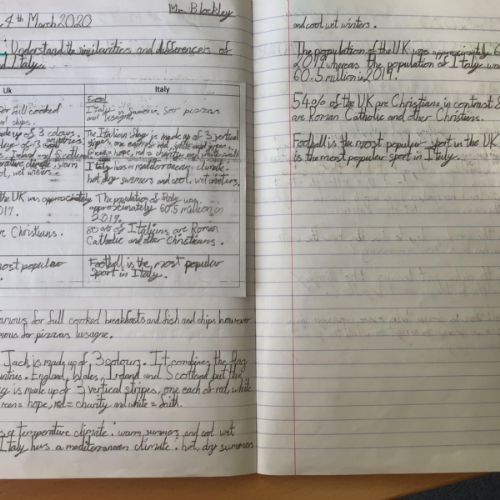 4th March 2020
Mr Blockley
: Understand the similarities and differences of
d Italy.
UK
Italy
for full cooked
chips.
Food
Italy is famous for pizzas
and lasagne.
made up of 3 colours.
flag of
Ireland and Scotland
The Italian flag is made up of 3 vertical
stripes, one each or red, white and green.
= hope, red = charity and white = faith
climate: warm
wet winters
Italy has a mediterranean climate.
hot, dry summers and cool, wet winters.
the UK was approximately
2019.
The population of Italy was
approximately 60.5 million in
2019.
re Christians.
80% of Italians are Roman
Catholic and other Christians.
most popular
Football is the most popular
sport in Italy.
famous for full cooked breakfasts and fish and chips however
famous for pizzas lasagne.
Jack is made up of 3 colours. It combines the flag
countries. England, Wales, Ireland and Scotland but the
flag is made up of 3 vertical stripes, one each or red, white
green = hope, red = charity and white = faith.
a temperature climate: warm summers and cool wet
Italy has a mediterranean climate: hot, dry summers
and cool wet winters.
The population of the UK was approximately
2019 whereas the population of Italy was
60.5 million in 2019.
54% of the UK are Christians, in contrast 8
are Roman Catholic and other Christians.
Football is the most popular sport in the UK
is the most popular sport in Italy.